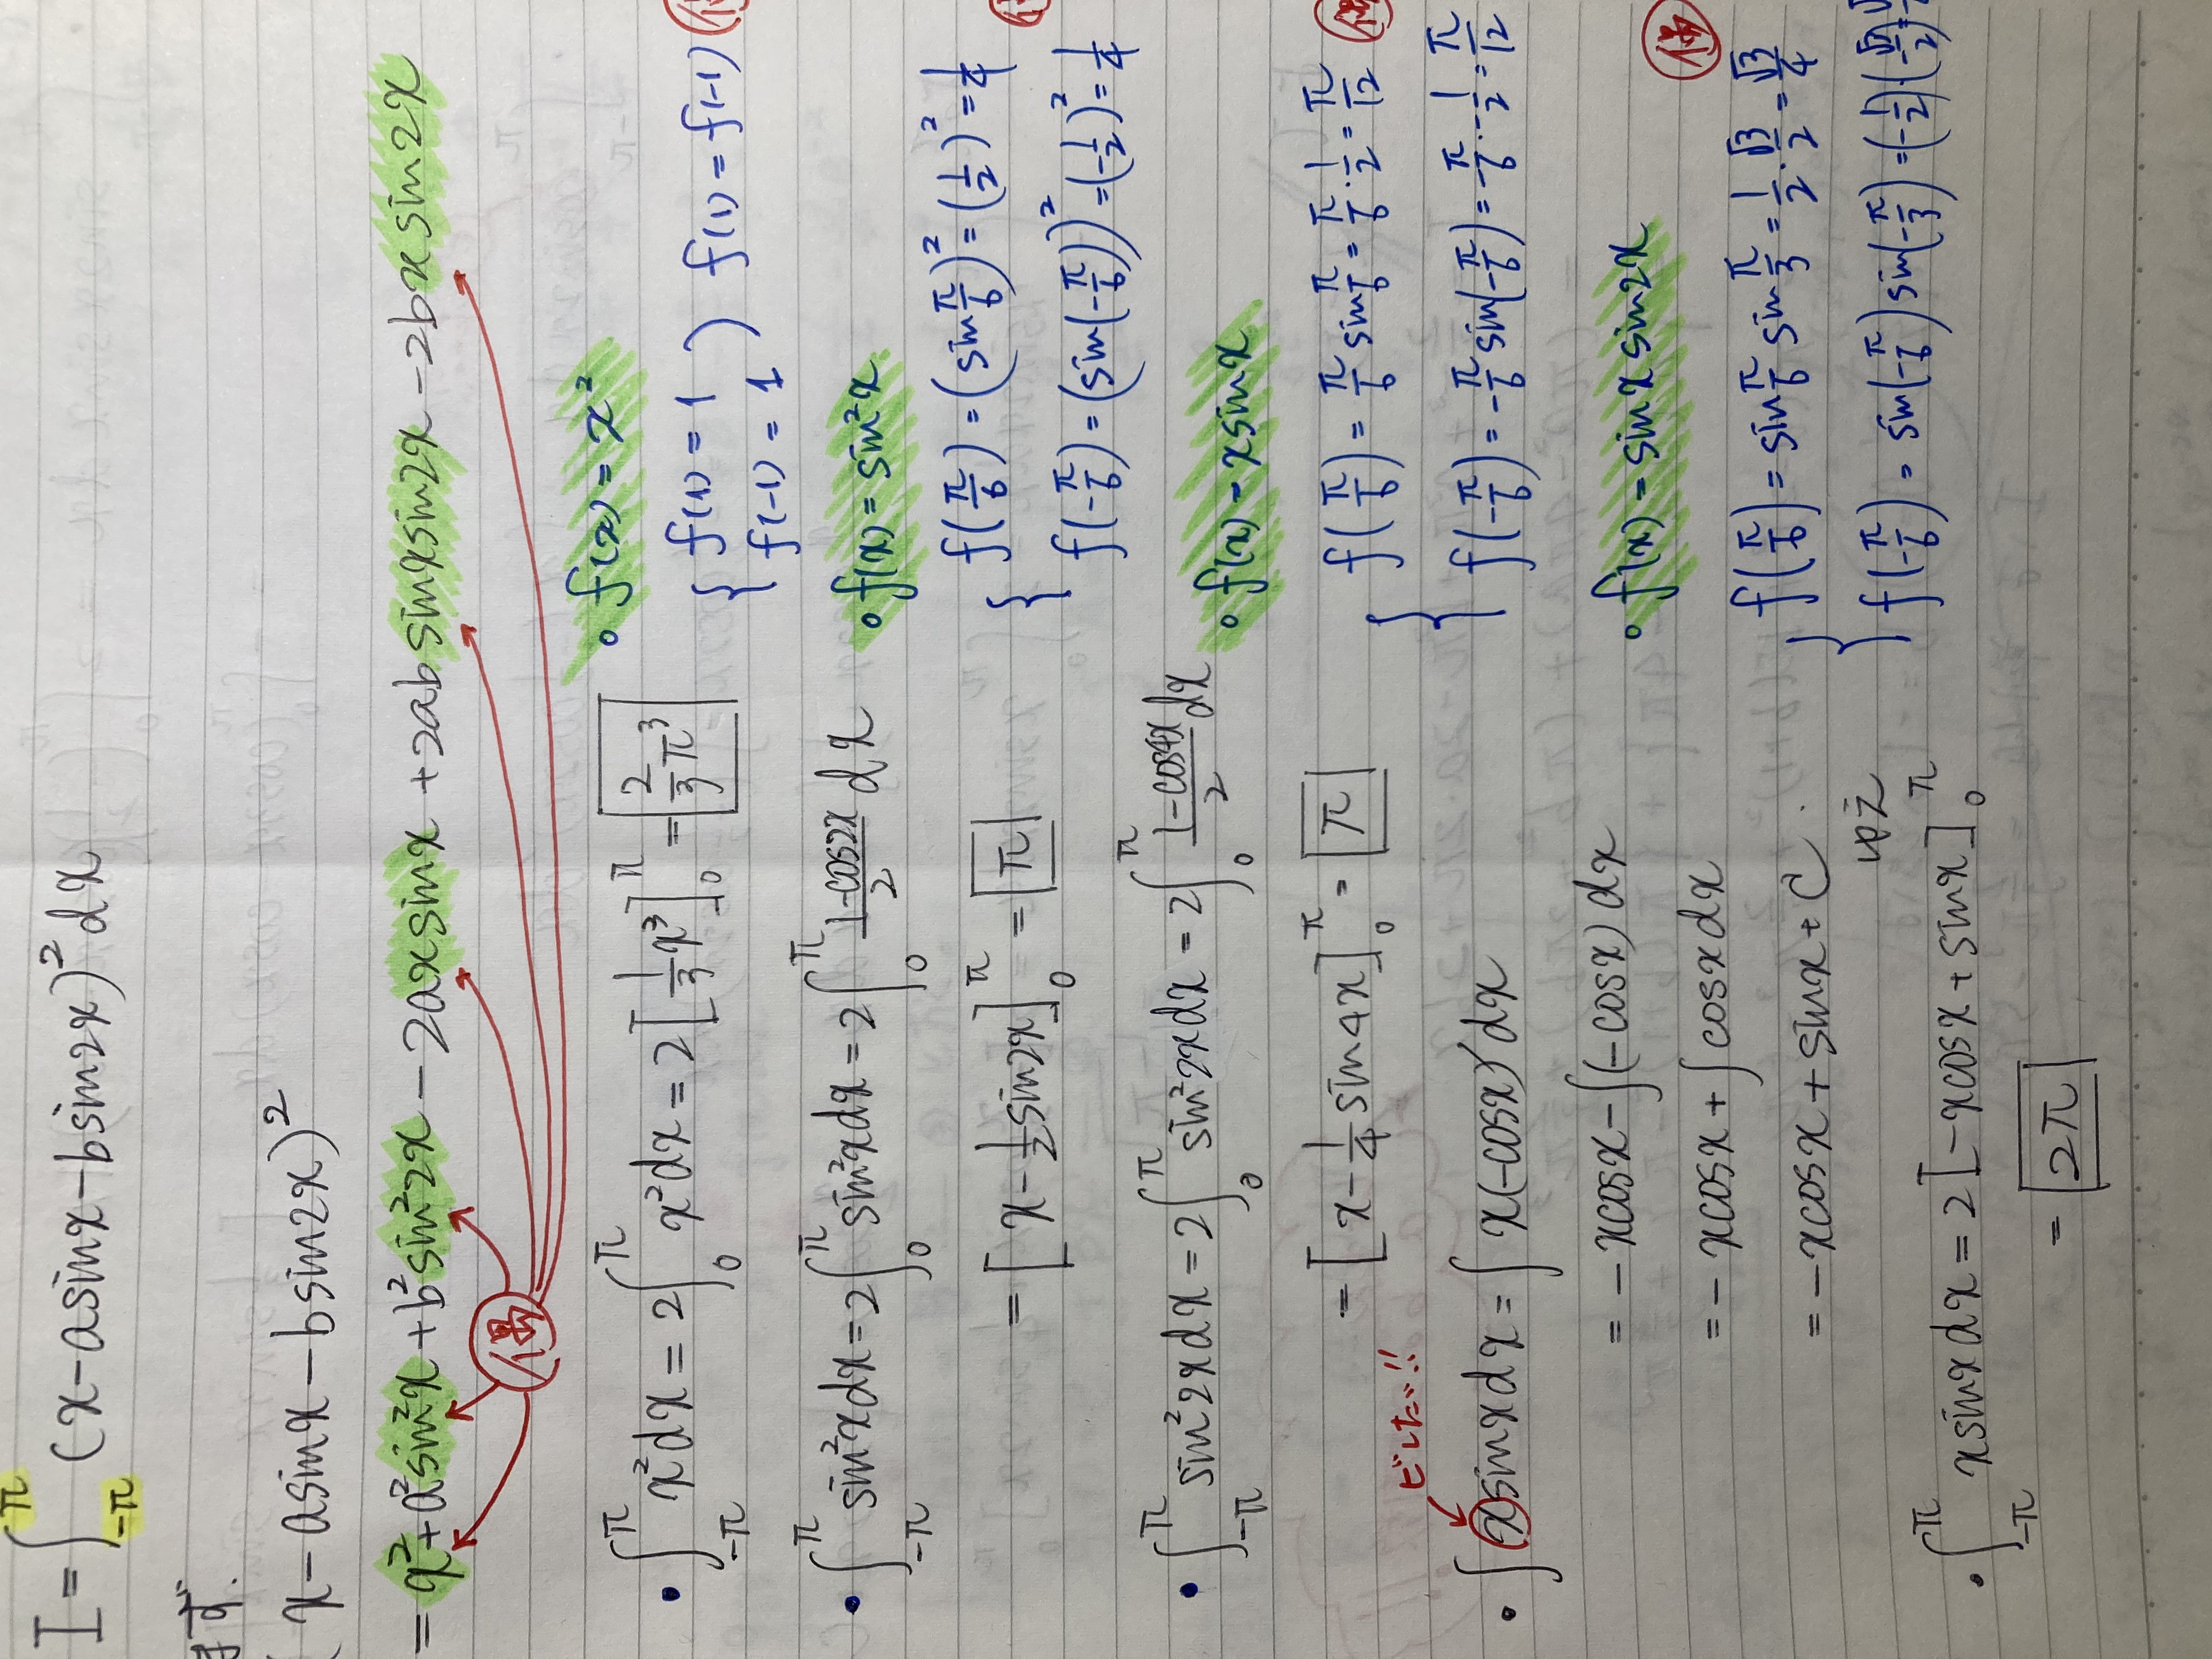 I = ∫_{-π}^{π} (x - asinx - bsin2x)² dx
まず.
(x - asinx - bsin2x)²
= x² + a²sin²x + b²sin²2x - 2axsinx + 2absinxsin2x - 2bxsin2x
偶
• ∫_{-π}^{π} x²dx = 2∫_{0}^{π} x²dx = 2[1/3 x³]_{0}^{π} = 2/3 π³
• ∫_{-π}^{π} sin²xdx = 2∫_{0}^{π} sin²xdx = 2∫_{0}^{π} (1-cos2x)/2 dx
= [x - 1/2 sin2x]_{0}^{π} = π
• ∫_{-π}^{π} sin²2xdx = 2∫_{0}^{π} sin²2xdx = 2∫_{0}^{π} (1-cos4x)/2 dx
= [x - 1/4 sin4x]_{0}^{π} = π
ビした!!
• ∫xsinxdx = ∫x(-cosx)'dx
= -xcosx - ∫(-cosx)dx
= -xcosx + ∫cosxdx
= -xcosx + sinx + C.
• ∫_{-π}^{π} xsinxdx = 2[-xcosx + sinx]_{0}^{π}
= 2π
• f(x) = x²
{ f(1) = 1
f(-1) = 1 ) f(1) = f(-1) 偶
• f(x) = sin²x
{ f(π/6) = (sin π/6)² = (1/2)² = 1/4
f(-π/6) = (sin(-π/6))² = (-1/2)² = 1/4
• f(x) = xsinx
偶
{ f(π/6) = π/6 sin π/6 = π/6 · 1/2 = π/12
f(-π/6) = -π/6 sin(-π/6) = -π/6 · -1/2 = π/12
• f(x) = sinxsin2x
偶
{ f(π/6) = sin π/6 sin π/3 = 1/2 · √3/2 = √3/4
f(-π/6) = sin(-π/6) sin(-π/3) = (-1/2)(-√3/2) =